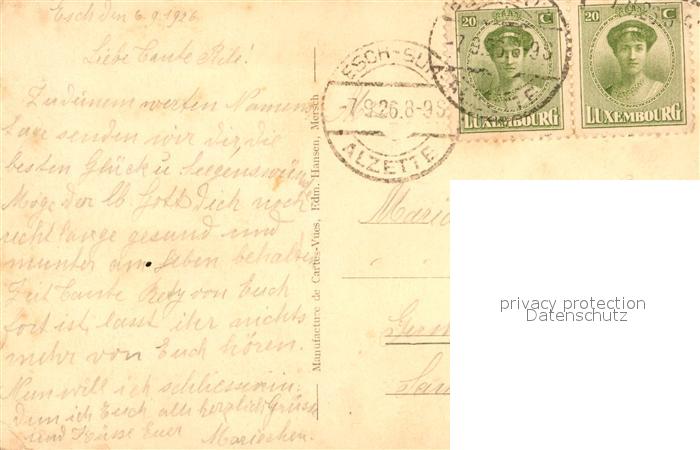 Esch den 6.9.1926
Liebe Tante Rili!
Zu deinem werten Namens
tage senden wir dir die
besten Glück u Seegenswünsche
Möge der lb Gott Dich noch
recht lange gesund und
munter am Leben behalten
Zeit Tante Rety von Euch
fort ist lasst ihr nichts
mehr von Euch hören.
Nun will ich schliessen in
dem ich Euch alle herzlich Grüsse
und Küsse Euer Mariechen.
Manufacture de Cartes-Vues, Edm. Hansen, Mersch
ESCH-SUR-
-7.9.26.8-9S
ALZETTE
20 C
LUXEMBOURG
20 C
LUXEMBOURG
ALZETTE
privacy protection
Datenschutz